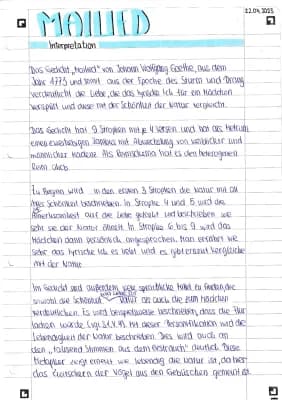 22.04.2023
MAILIED
Interpretation
Das Gedicht „Mailied" von Johann Wolfgang Goethe, aus dem
Jahr 1775 und somit aus der Epoche des Sturm und Drang
verdeutlicht die Liebe, die das lyrische Ich für ein Mädchen
verspürt und diese mit der Schönheit der Natur vergleicht.
Das Gedicht hat 9 Strophen mit je 4 Versen und hat als Metrum
einen zweihebigen Jambus mit Abwechslung von weiblicher und
männlicher Kadenz. Als Reimschema hat es den heterogenen
Reim abcb.
Zu Beginn wird in den ersten 3 Strophen die Natur mit all
Schönheit beschrieben. In Strophe 4 und 5 wird die
Aufmerksamkeit auf die Liebe gelenkt und beschrieben wie
sehr sie der Natur ähnelt. In Strophe 6 bis 9 wird das
Mädchen dann persönlich angesprochen. Man erfährt wie
sehr das lyrische Ich es liebt und es gibt erneut Vergleiche
mit der Natur.
Im Gedicht sind außerdem viele sprachliche Mittel zu finden, die
sowohl die Schönheit der Natur als auch die zum Mädchen
verdeutlichen. Es wird beispielsweise beschrieben, dass die Flur
lachen würde (vgl. S.1, V.4). Mit dieser Personifikation wird die
Lebendigkeit der Natur beschrieben. Dies wird auch an
den „tausend Stimmen aus dem Gesträuch" deutlich. Diese
Metapher zeigt erneut wie lebendig die Natur ist, da hier
das Zwitschern der Vögel aus den Gebüschen gemeint ist.